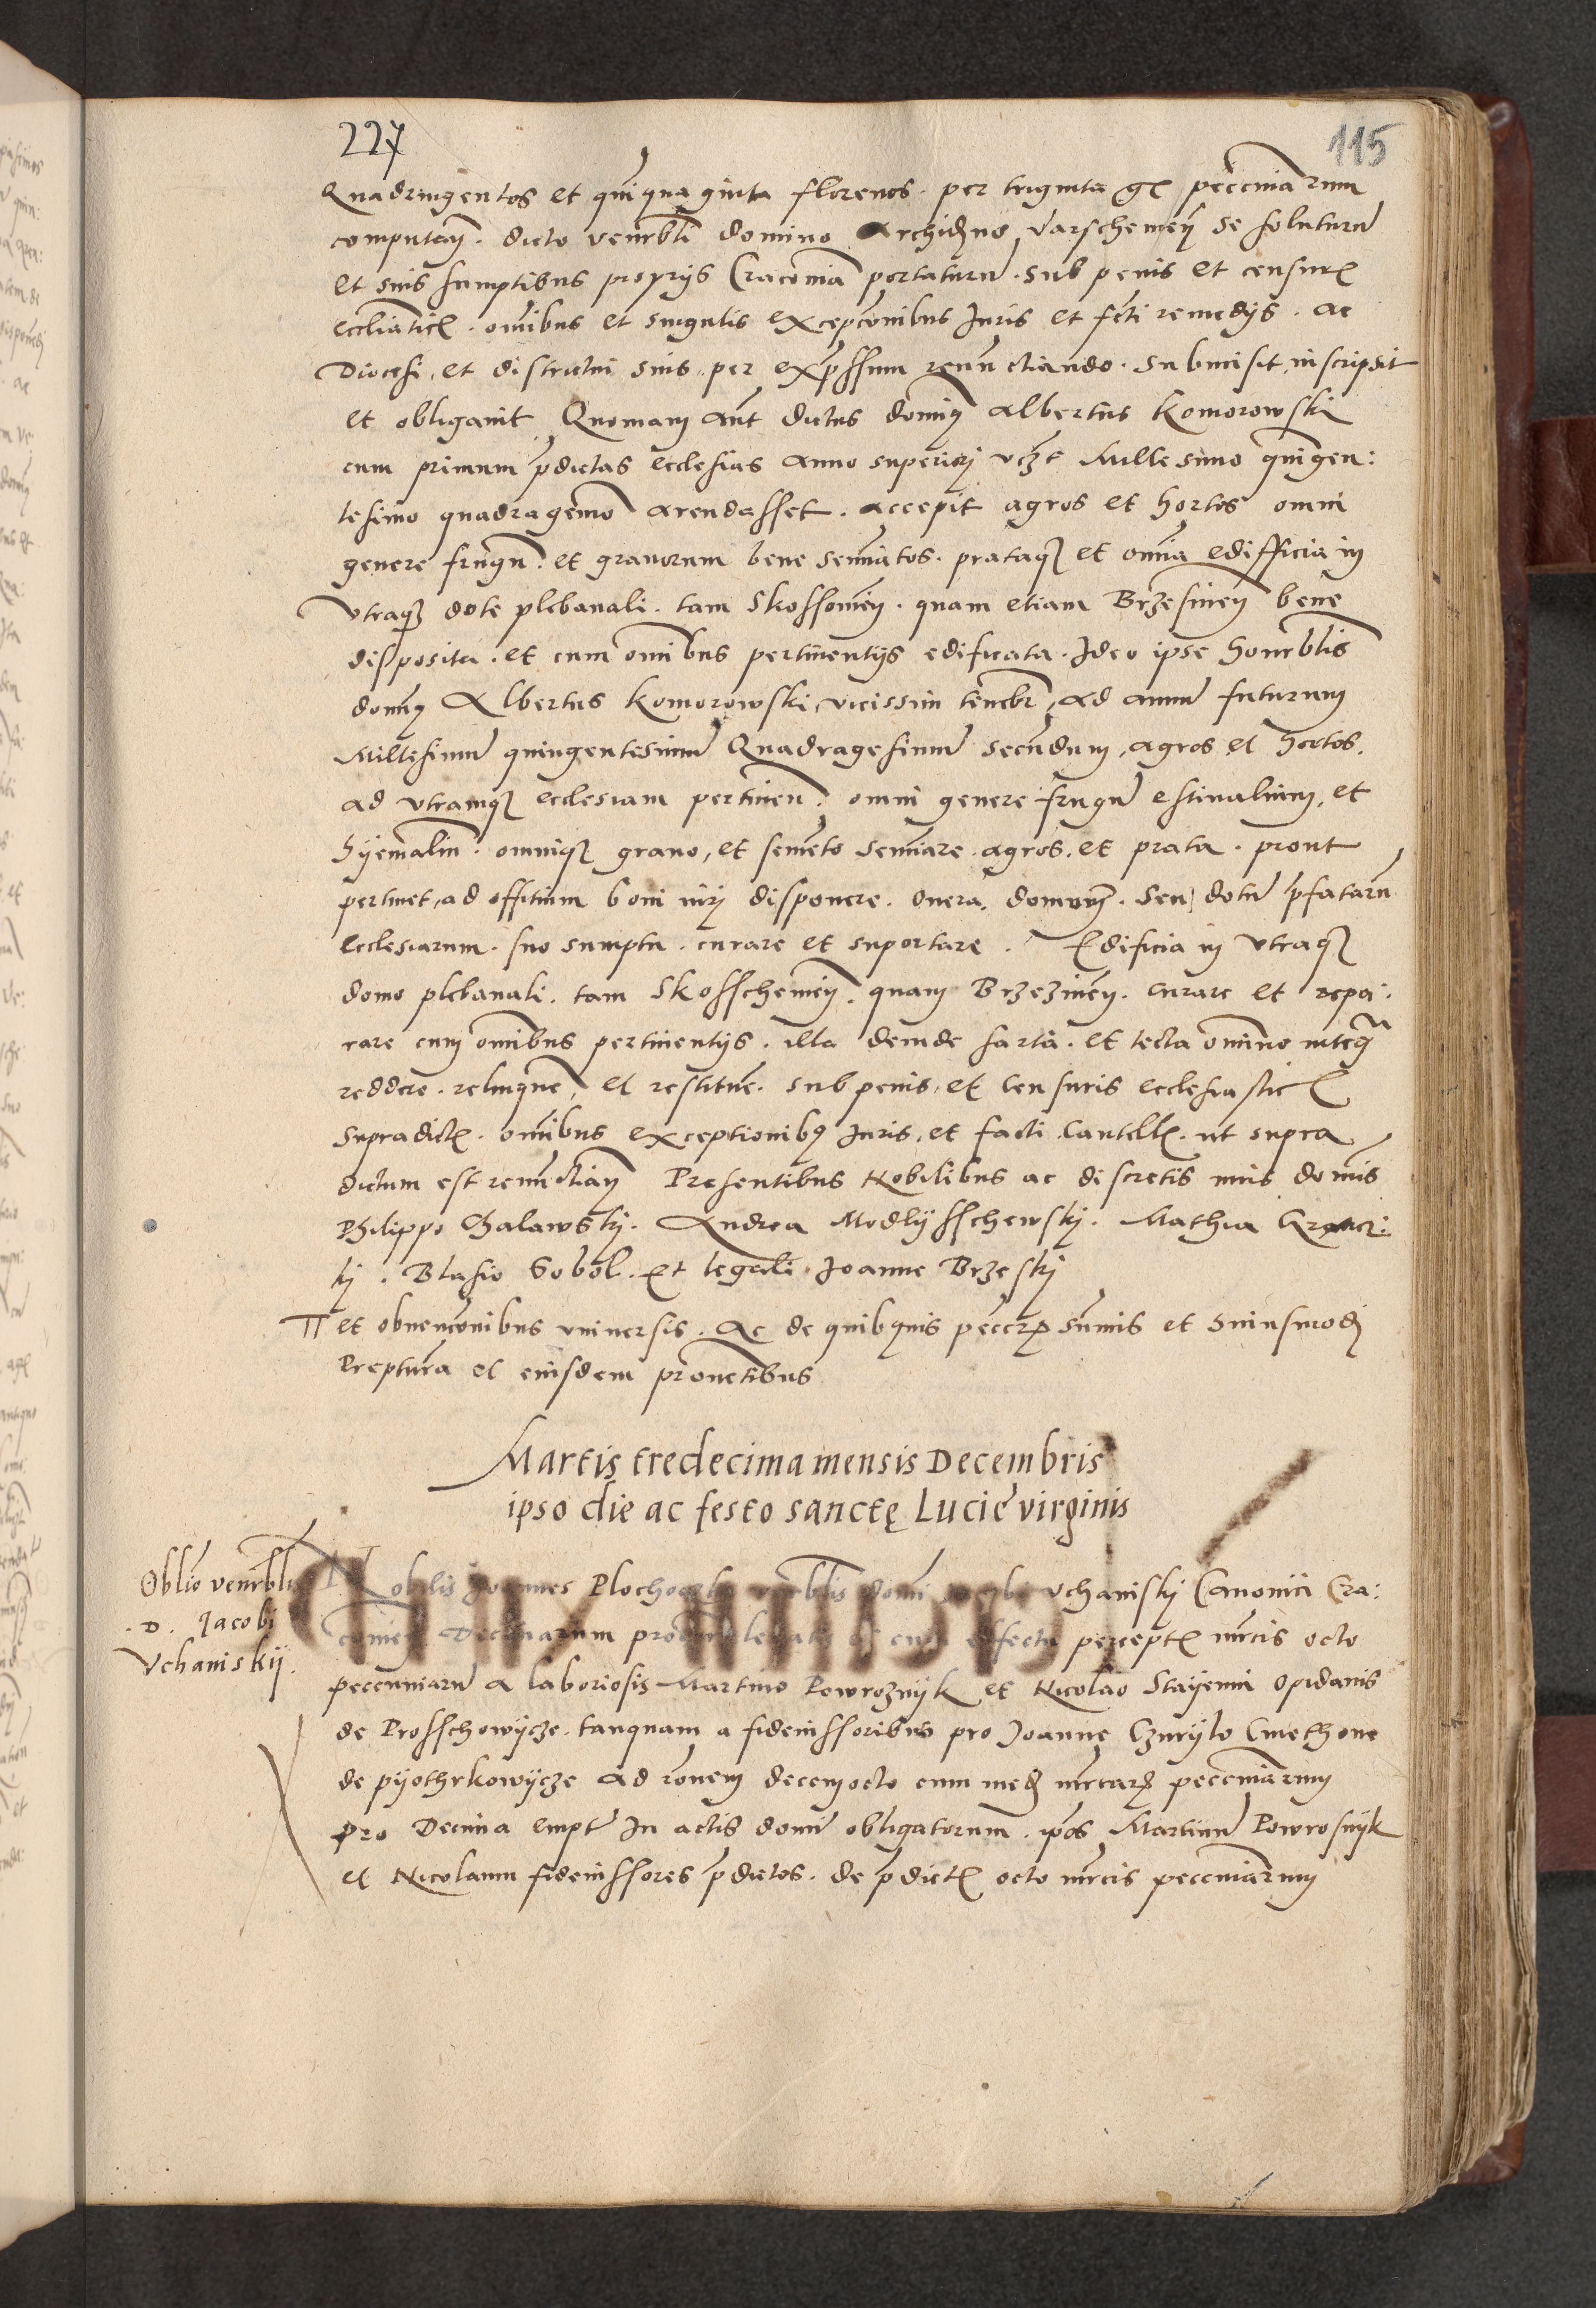 227
115
Quadringentos et quinquaginta florenos. per triginta gr pecuniarum
computan. dicto venerbli domino Archidno Varschewien se soluturum
et suis sumptibus proprijs Cracoviam portaturum. sub penis et censuris
eccliasticis. omibus et singulis excepconibus Juris et fcti remedijs. ac
Diocesi, et districtui suis per expssum renunctiando. submisit, inscripsit
et obligavit. Quoniam aut dictus dominus Albertus Komorowski
cum primum pdictas ecclesias anno superiori vczt Millesimo quingen:
tesimo quadragemo arendasset. accepit agros et hortos omni
genere frugum et granorum bene seminatos. prataque et omnia edifficia in
utraque dote plebanali. tam Skossovien. quam etiam Brzesinen bene
disposita. et cum omibus pertinentijs edificata. Ideo ipse honerblis
dominus Albertus Komorowski, vicissim tenebr, ad annum futurum
Millesimum quingentesimum Quadragesimum secundum, agros et hortos.
ad utramque ecclesiam pertinen. omni genere frugum estivalium, et
hyemalium. omnique grano, et semento seminare. agros. et prata. prout
pertinet, ad offitium boni viri disponere. onera. domorum. seu dotum pfatarum
ecclesiarum. suo sumptu. curare et suportare. Edificia in utraque
domo plebanali. tam Skosschewien. quam Brzezinen. curare et repa:
rare cum omibus pertinentijs. illa deinde sarta. et tecta omnino integra
reddere. relinquere, et restituere. sub penis, et censuris ecclesiasticis
supradictis. omibus exceptionibus Juris, et facti cautelis. ut supra
dictum est renunctian Presentibus Nobilibus ac discretis viris dominis
Philippo Chalawskj. Andrea Modlijsschewskj. Mathia
kj. Blasio Sobol. et legali Joanne Brzeskj
et obvenconibus universis. ac de quibquis summis et huiusmodi
et eiusdem proventibus
Martis tredecima mensis Decembris
ipso die ac festo sanctę Lucie virginis
Oblio venerblis
D. Jacobi
Vchaniskij.
Nobilis Joannes Plochoczki venerblis domini Jacobi Vchaniskj Canonici Cra:
covien Decimarum et cum effectu perceptis mrcis octo
pecuniarum a laboriosis Martino Powroznijk et Nicolao Stayenni opidanis
de Prosschowijcze. tanquam a fideiussoribus pro Joanne Czurylo Cmethone
de pijothrkowijcze ad ronem decem octo cum med mrcarum pecuniarum
pro Decima empt In actis domini obligatorum. ipos Martinum Powrosnijk
et Nicolaum fideiussores pdictos. de pdictis octo mrcis pecuniarum